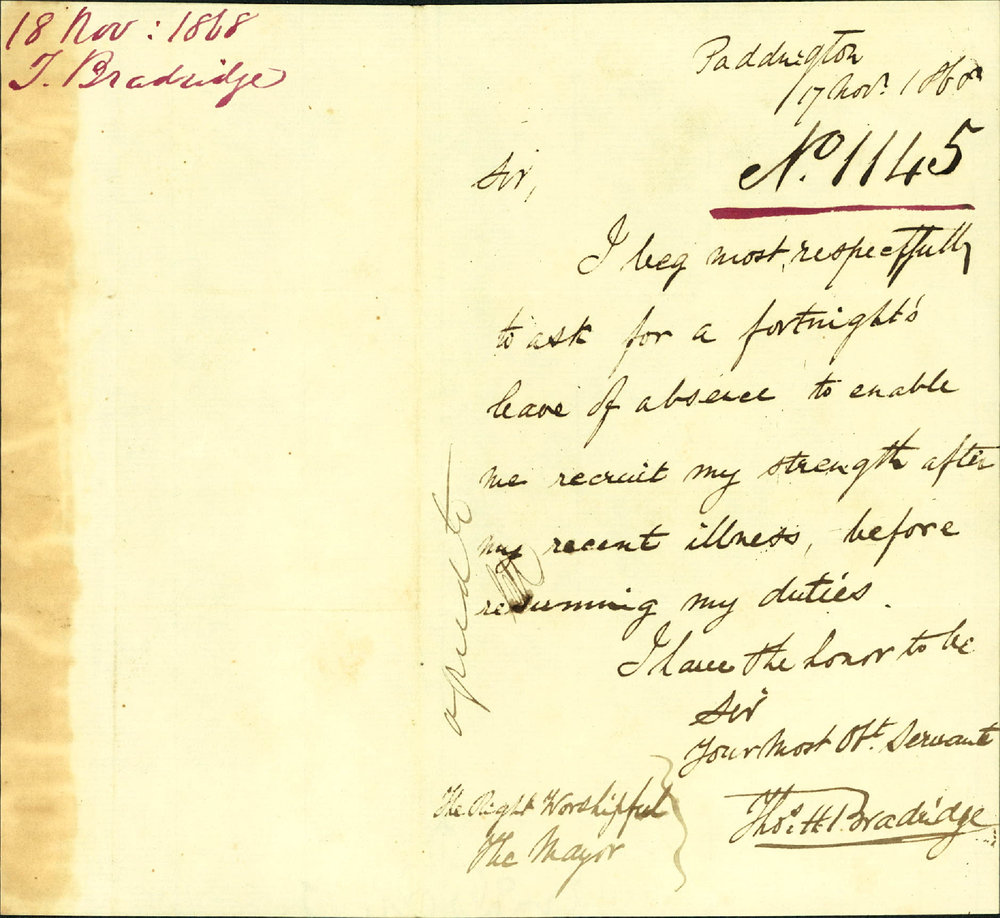 18 Nov: 1868
T. Bradridge
Paddington
17 Novr. 1868
No. 1145
Sir,
I beg most respectfully
to ask for a fortnight's
leave of absence to enable
me recruit my strength after
my recent illness, before
resuming my duties.
I have the honor to be
Sir
Your most Obt. Servant
Thos. H Bradridge
The Right Worshipful
The Mayor